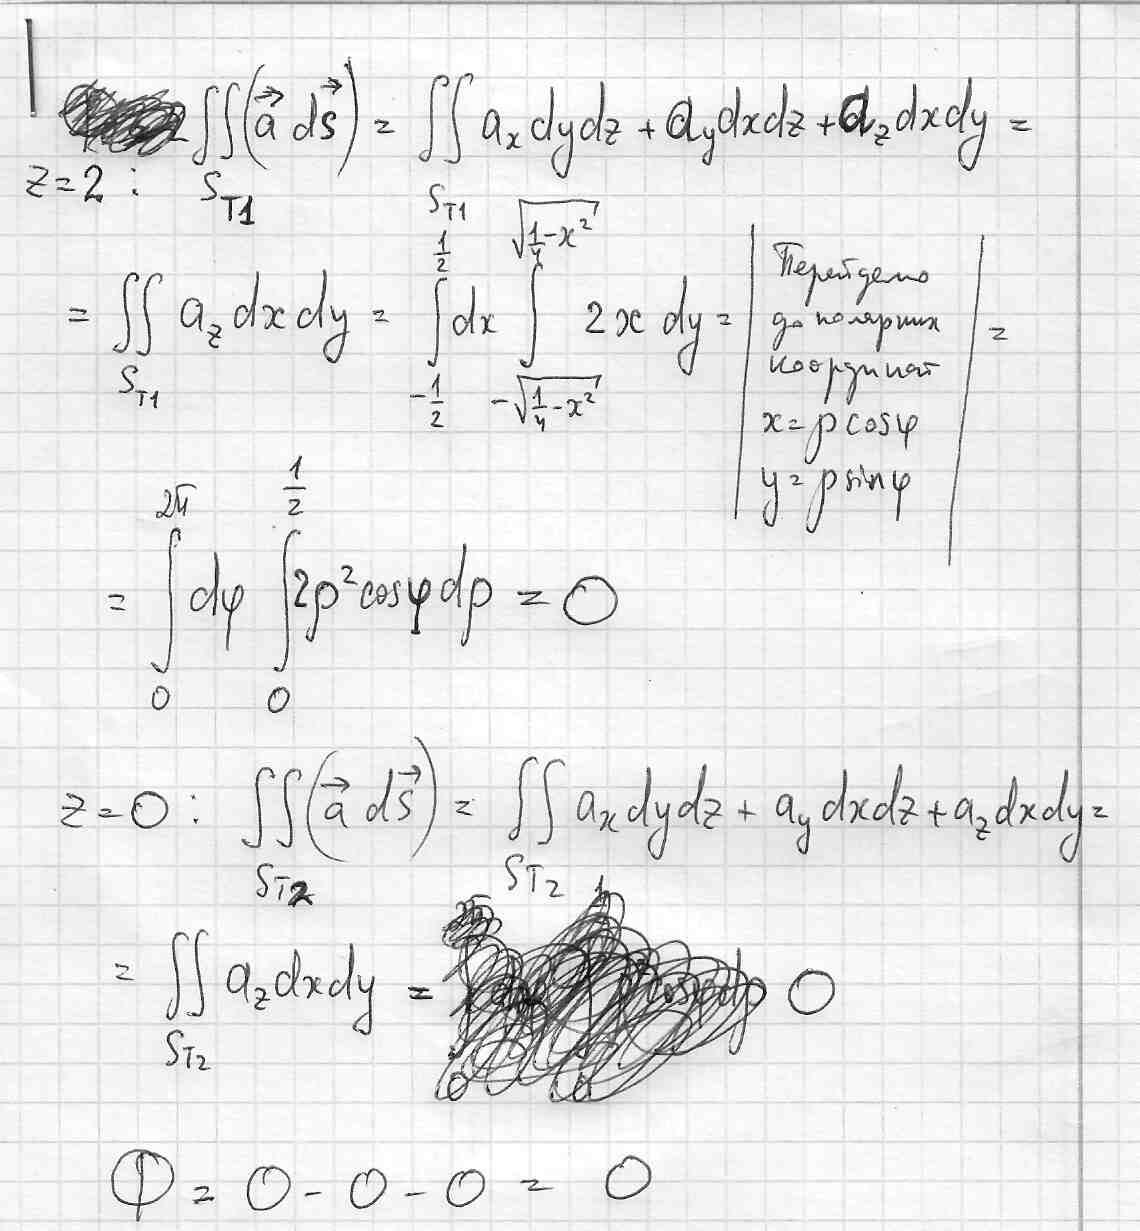 ∬(a⃗ ds⃗) = ∬ aₓ dydz + a_y dxdz + a_z dxdy =
z = 2 : S_T1 S_T1
= ∬_{S_T1} a_z dx dy = ∫_{-1/2}^{1/2} dx ∫_{-√(1/4-x²)}^{√(1/4-x²)} 2x dy = | Перейдемо до полярних координат x = ρ cosφ y = ρ sinφ | =
= ∫_0^{2π} dφ ∫_0^{1/2} 2ρ² cosφ dρ = 0
z = 0 : ∬_{S_T2} (a⃗ ds⃗) = ∬_{S_T2} aₓ dydz + a_y dxdz + a_z dxdy =
= ∬_{S_T2} a_z dxdy = 0
Ф = 0 - 0 - 0 = 0